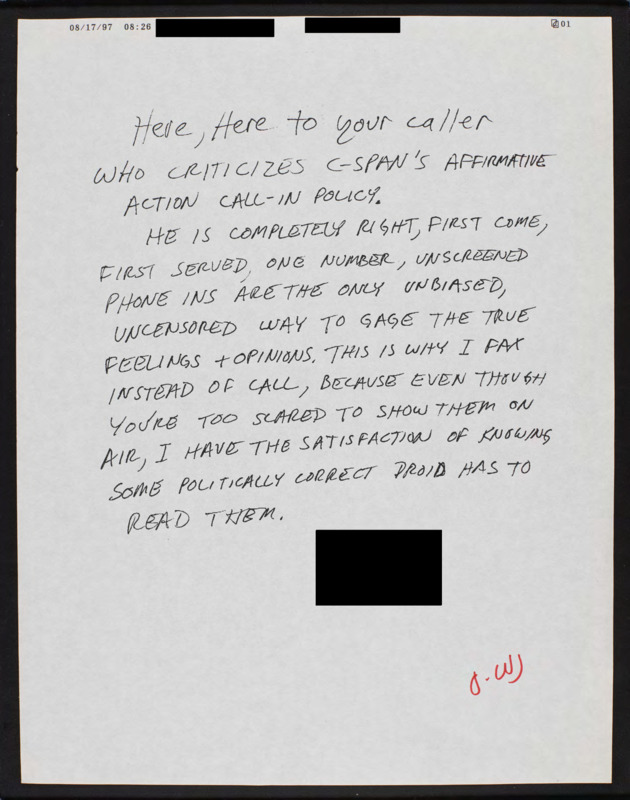 08/17/97 08:26 01
Here, Here to your caller
WHO CRITICIZES C-SPAN'S AFFIRMATIVE
ACTION CALL-IN POLICY.
HE IS COMPLETELY RIGHT, FIRST COME,
FIRST SERVED, ONE NUMBER, UNSCREENED
PHONE INS ARE THE ONLY UNBIASED,
UNCENSORED WAY TO GAGE THE TRUE
FEELINGS + OPINIONS. THIS IS WHY I FAX
INSTEAD OF CALL, BECAUSE EVEN THOUGH
YOU'RE TOO SCARED TO SHOW THEM ON
AIR, I HAVE THE SATISFACTION OF KNOWING
SOME POLITICALLY CORRECT DROID HAS TO
READ THEM.